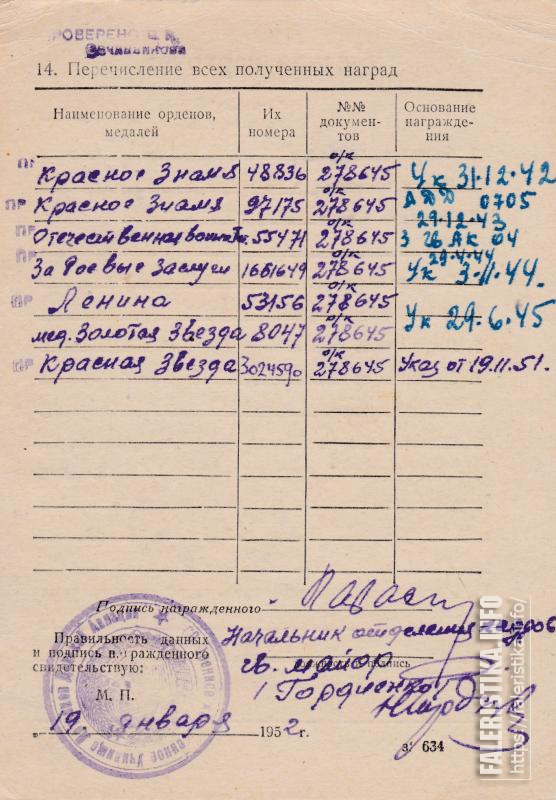 ПРОВЕРЕНО
14. Перечисление всех полученных наград
Наименование орденов, медалей
Их номера
№№ докумен-тов
Основание награжде-ния
ПР Красное Знамя 48836 о/к 278645 Ук 31.12.42
ПР Красное Знамя 97175 о/к 278645 АДД 0705 29.12.43
ПР Отечественная война 55471 о/к 278645 3 гв АК 04 29.4.44
ПР За боевые заслуги 1661649 о/к 278645 Ук 3.11.44.
ПР Ленина 53156 о/к 278645 Ук 29.6.45
мед. Золотая Звезда 8047 о/к 278645
ПР Красная Звезда 3024590 о/к 278645 Указ от 19.11.51.
Подпись награжденного
Правильность данных
и подпись награжденного
свидетельствую:
Начальник отделения кадров
гв. майор
должность и подпись
/ Гордиенко /
М. П.
„19" января 1952 г.
з. 634
FALERISTIKA.INFO
https://faleristika.info/